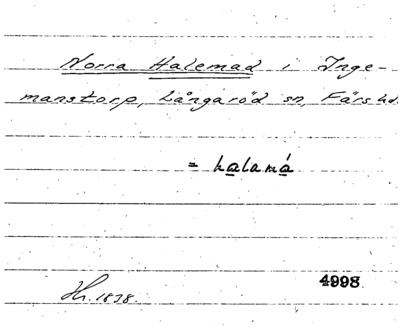 Norra Halemad i Inge-
manstorp, Långaröd sn, Färs hd.
= halamá
Hr. 1838
4998